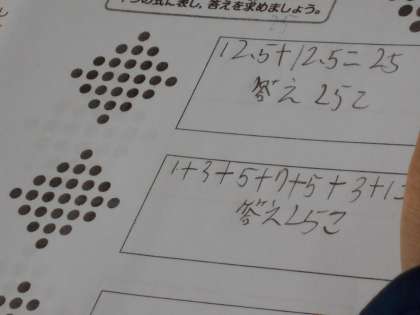 つの式に表し、答えを求めましょう。
12.5+12.5=25
答え 25こ
1+3+5+7+5+3+1=
答え25こ